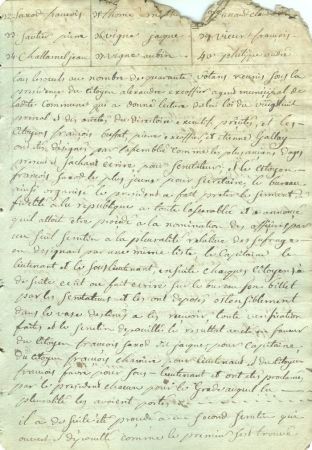 22 Farod francois
23 Sautier pierre 29 Vigne jaque 34 Vieux francois
24 Challamel jean Vigne aubin 40 philippe andré
tous inscrits au nombre de quarante, votans reunis sous la
presidence du Citoyen alexandre agent municipal de
ladite Commune qui a donné lecture de la loi du vingt huit
prairial et des arretés du directoire executif, et les
Citoyens françois pierre et etienne Gallay
ont été designés par l'assemblée comme les plus anciens d'age
presents sachant ecrire pour scrutateurs et le Citoyen
francois farod le plus jeune pour secretaire, le bureau
ainsi organisé le president a fait preter le serment de
fidelité a la republique a toute l'assemblée et a annoncé
qu'il alloit etre procedé a la nomination des officiers par
un seul scrutin a la pluralité relative des suffrages
en designant par une meme liste, le Capitaine, le
lieutenant et le sous lieutenant, ensuite chaque Citoyen
de suite ecrit ou fait ecrire sur le bureau son billet
par les scrutateurs et les ont deposés ostensiblement
dans le vase destiné a les recevoir, toute verification
faite, et le scrutin depouillé le resultat est en faveur
du Citoyen francois farod dit jaque, pour Capitaine,
du Citoyen francois pour lieutenant et du Citoyen
francois pour sous-lieutenant et ont été proclamés
par le president chacun pour les Grades auquel la
pluralité les avoient portés.
il a été de suite procedé a un second scrutin qui
ouvert et depouillé comme le premier s'est trouvé